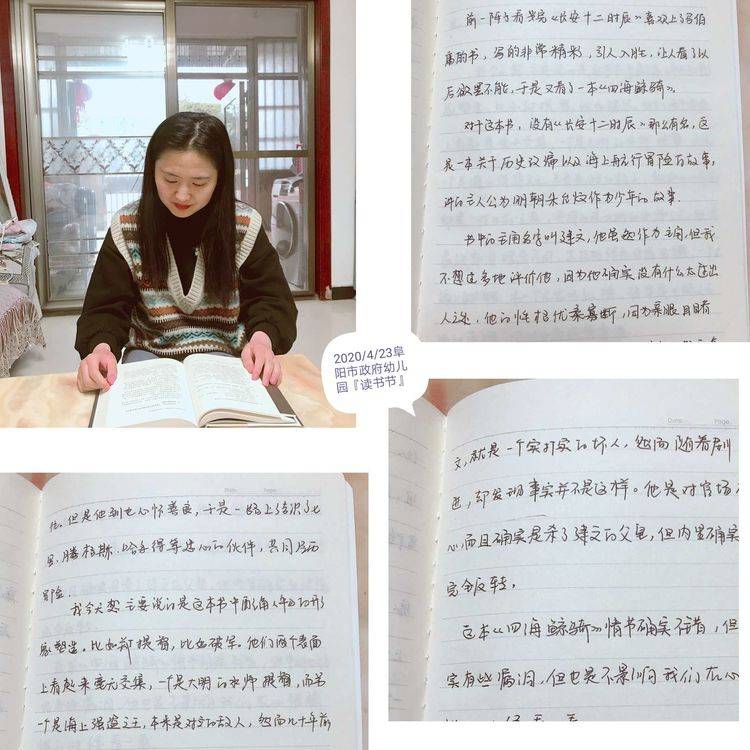 前一阵子看完《长安十二时辰》喜欢上了马伯
庸的书,写的非常精彩,引人入胜,让人看了以
后欲罢不能,于是又看了一本《四海鲸骑》。
对于这本书,没有《长安十二时辰》那么有名,这
是一本关于历史改编以及海上航行冒险的故事,
讲的主人公为明朝朱允炆作为少年的故事.
书中的主角名字叫建文,他虽然作为主角,但我
不想过多地评价他,因为他确实没有什么太过出
人之处,他的性格优柔寡断,因为亲眼目睹
2020/4/23阜
阳市政府幼儿
园『读书节』
他,但是他到也心怀善良,于是一路上结识了七
里、腾格斯、哈罗德等忠心的伙伴,共同历
冒险
我今天想主要说的是这本书中配角人物的形
象塑造。比如 提督,比如破军。他们两个表面
上看起来毫无交集,一个是大明的水师提督,而另
一个是海上强盗之王,本来是对立的敌人,然而几十年前
Date
Page
文,就是一个实打实的坏人,然而随着剧
进,却发现事实并不是这样。他是对官场
心,而且确实是杀了建文的父皇,但内里确实
完全反转,
这本《四海鲸骑》情书确实不错,但
实有些漏洞,但也是不影响我们在心